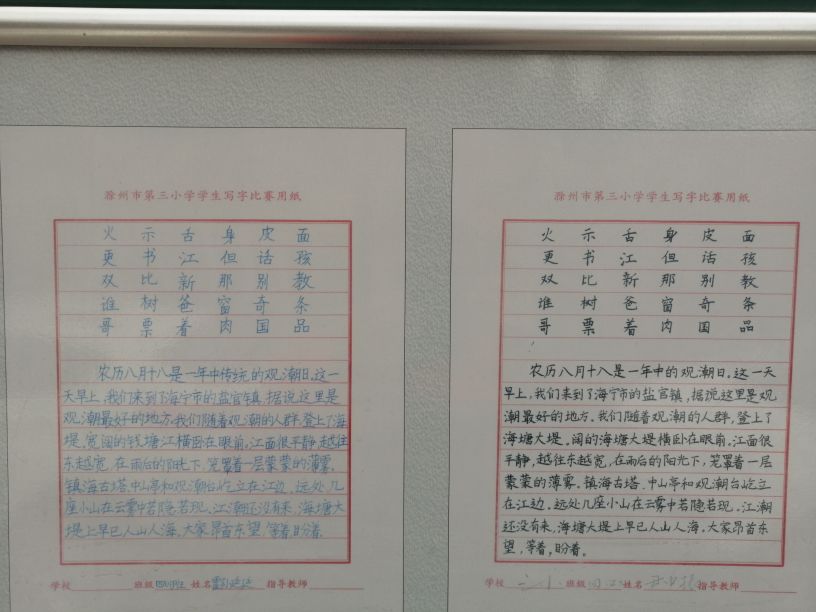 滁州市第三小学学生写字比赛用纸
火 示 舌 身 皮 面
更 书 江 但 话 孩
双 比 新 那 别 教
谁 树 爸 窗 奇 条
哥 票 着 肉 国 品
农历八月十八是一年中传统的观潮日。这一
天早上,我们来到了海宁市的盐官镇,据说这里是
观潮最好的地方。我们随着观潮的人群,登上了海
堤。宽阔的钱塘江横卧在眼前。江面很平静,越往
东越宽,在雨后的阳光下,笼罩着一层蒙蒙的薄雾。
镇海古塔、中山亭和观潮台屹立在江边。远处,几
座小山在云雾中若隐若现。江潮还没有来,海塘大
堤上早已人山人海。大家昂首东望,等着,盼着。
学校 班级 姓名 指导教师
滁州市第三小学学生写字比赛用纸
火 示 舌 身 皮 面
更 书 江 但 话 孩
双 比 新 那 别 教
谁 树 爸 窗 奇 条
哥 票 着 肉 国 品
农历八月十八是一年中的观潮日。这一天
早上,我们来到了海宁市的盐官镇,据说这里是观
潮最好的地方。我们随着观潮的人群,登上了
海塘大堤。阔的海塘大堤横卧在眼前。江面很
平静,越往东越宽,在雨后的阳光下,笼罩着一层
蒙蒙的薄雾。镇海古塔、中山亭和观潮台屹立
在江边。远处几座小山在云雾中若隐若现。江潮
还没有来,海塘大堤上早已人山人海。大家昂首东
望,等着,盼着。
学校 三小 班级 姓名 指导教师